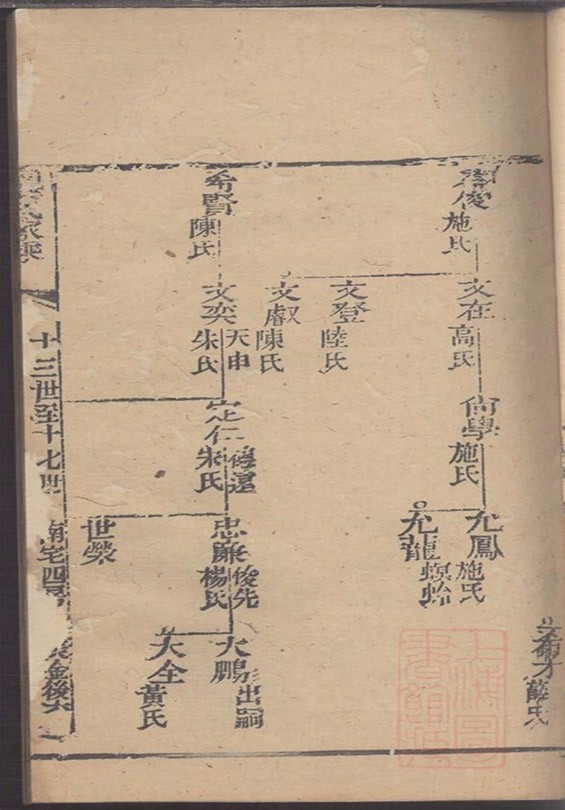 俊
施氏
文在
高氏
尚學
施氏
允鳳
施氏
允龍
螟蛉
文登
陸氏
文叡
陳氏
希賢
陳氏
文奕
天申
朱氏
定仁
朱氏
忠廉
俊先
楊氏
大鵬
出嗣
大全
黃氏
世榮
十三世至十七世
南宅四房
希才
薛氏
上海圖書館藏